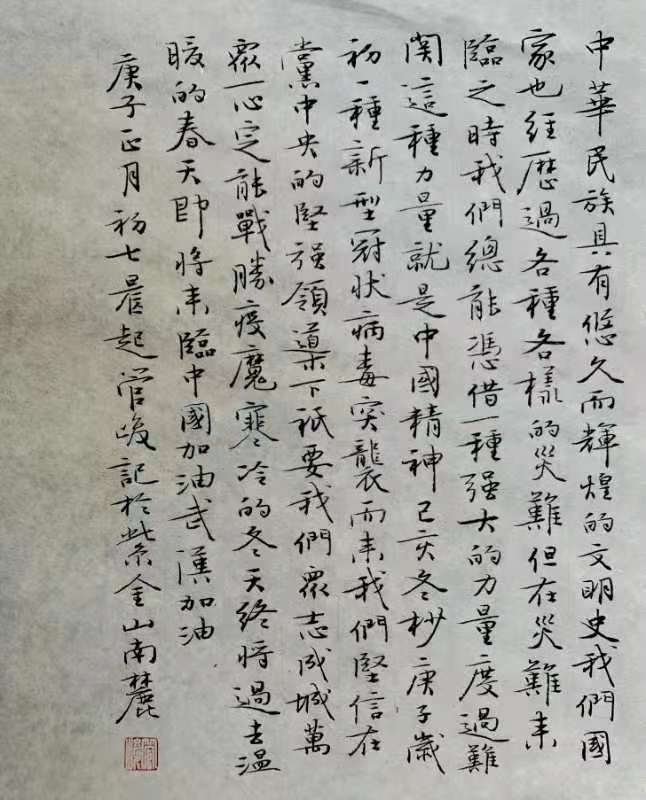 中華民族具有悠久而輝煌的文明史我們國
家也經歷過各種各樣的災難但在災難来
臨之時我們總能憑借一種强大的力量度過難
関這種力量就是中國精神己亥冬杪庚子歲
初一種新型冠狀病毒突襲而来我們堅信在
黨中央的堅强領導下祇要我們眾志成城萬
眾一心定能戰勝疫魔寒冷的冬天終將過去温
暖的春天即將来臨中國加油武漢加油
庚子正月初七晨起管峻記於紫金山南麓